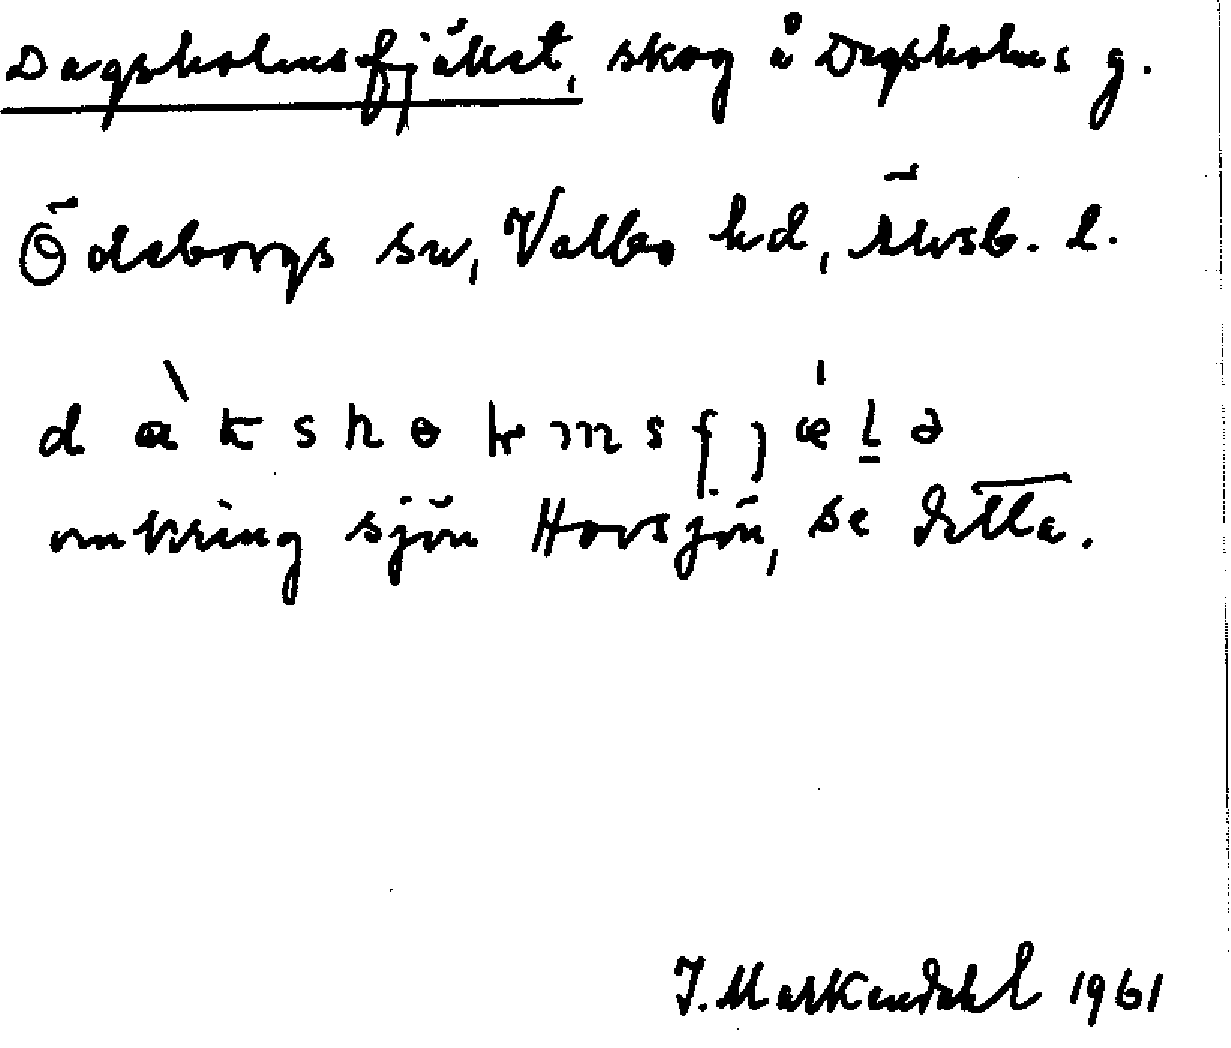 Dagsholmsfjället, skog å Dagsholms g.
Ödsborgs sn, Valbo hd, Älvsb. l.
omkring sjön Hovsjön, se detta.
1961